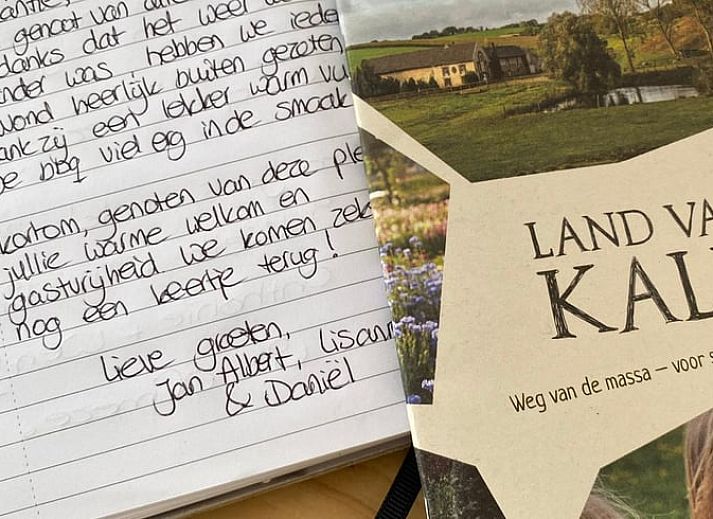 genoot van
danks dat het weer
nder was hebben we iede
vond heerlijk buiten gezeten
ankzij een lekker warm vu
De bbq viel erg in de smaak
kortom, genoten van deze ple
jullie warme welkom en
gastvrijheid we komen zek
nog een keertje terug!
Lieve groeten,
Jan Albert, Lisann
& Daniël
LAND VA
KAL
Weg van de massa – voor s